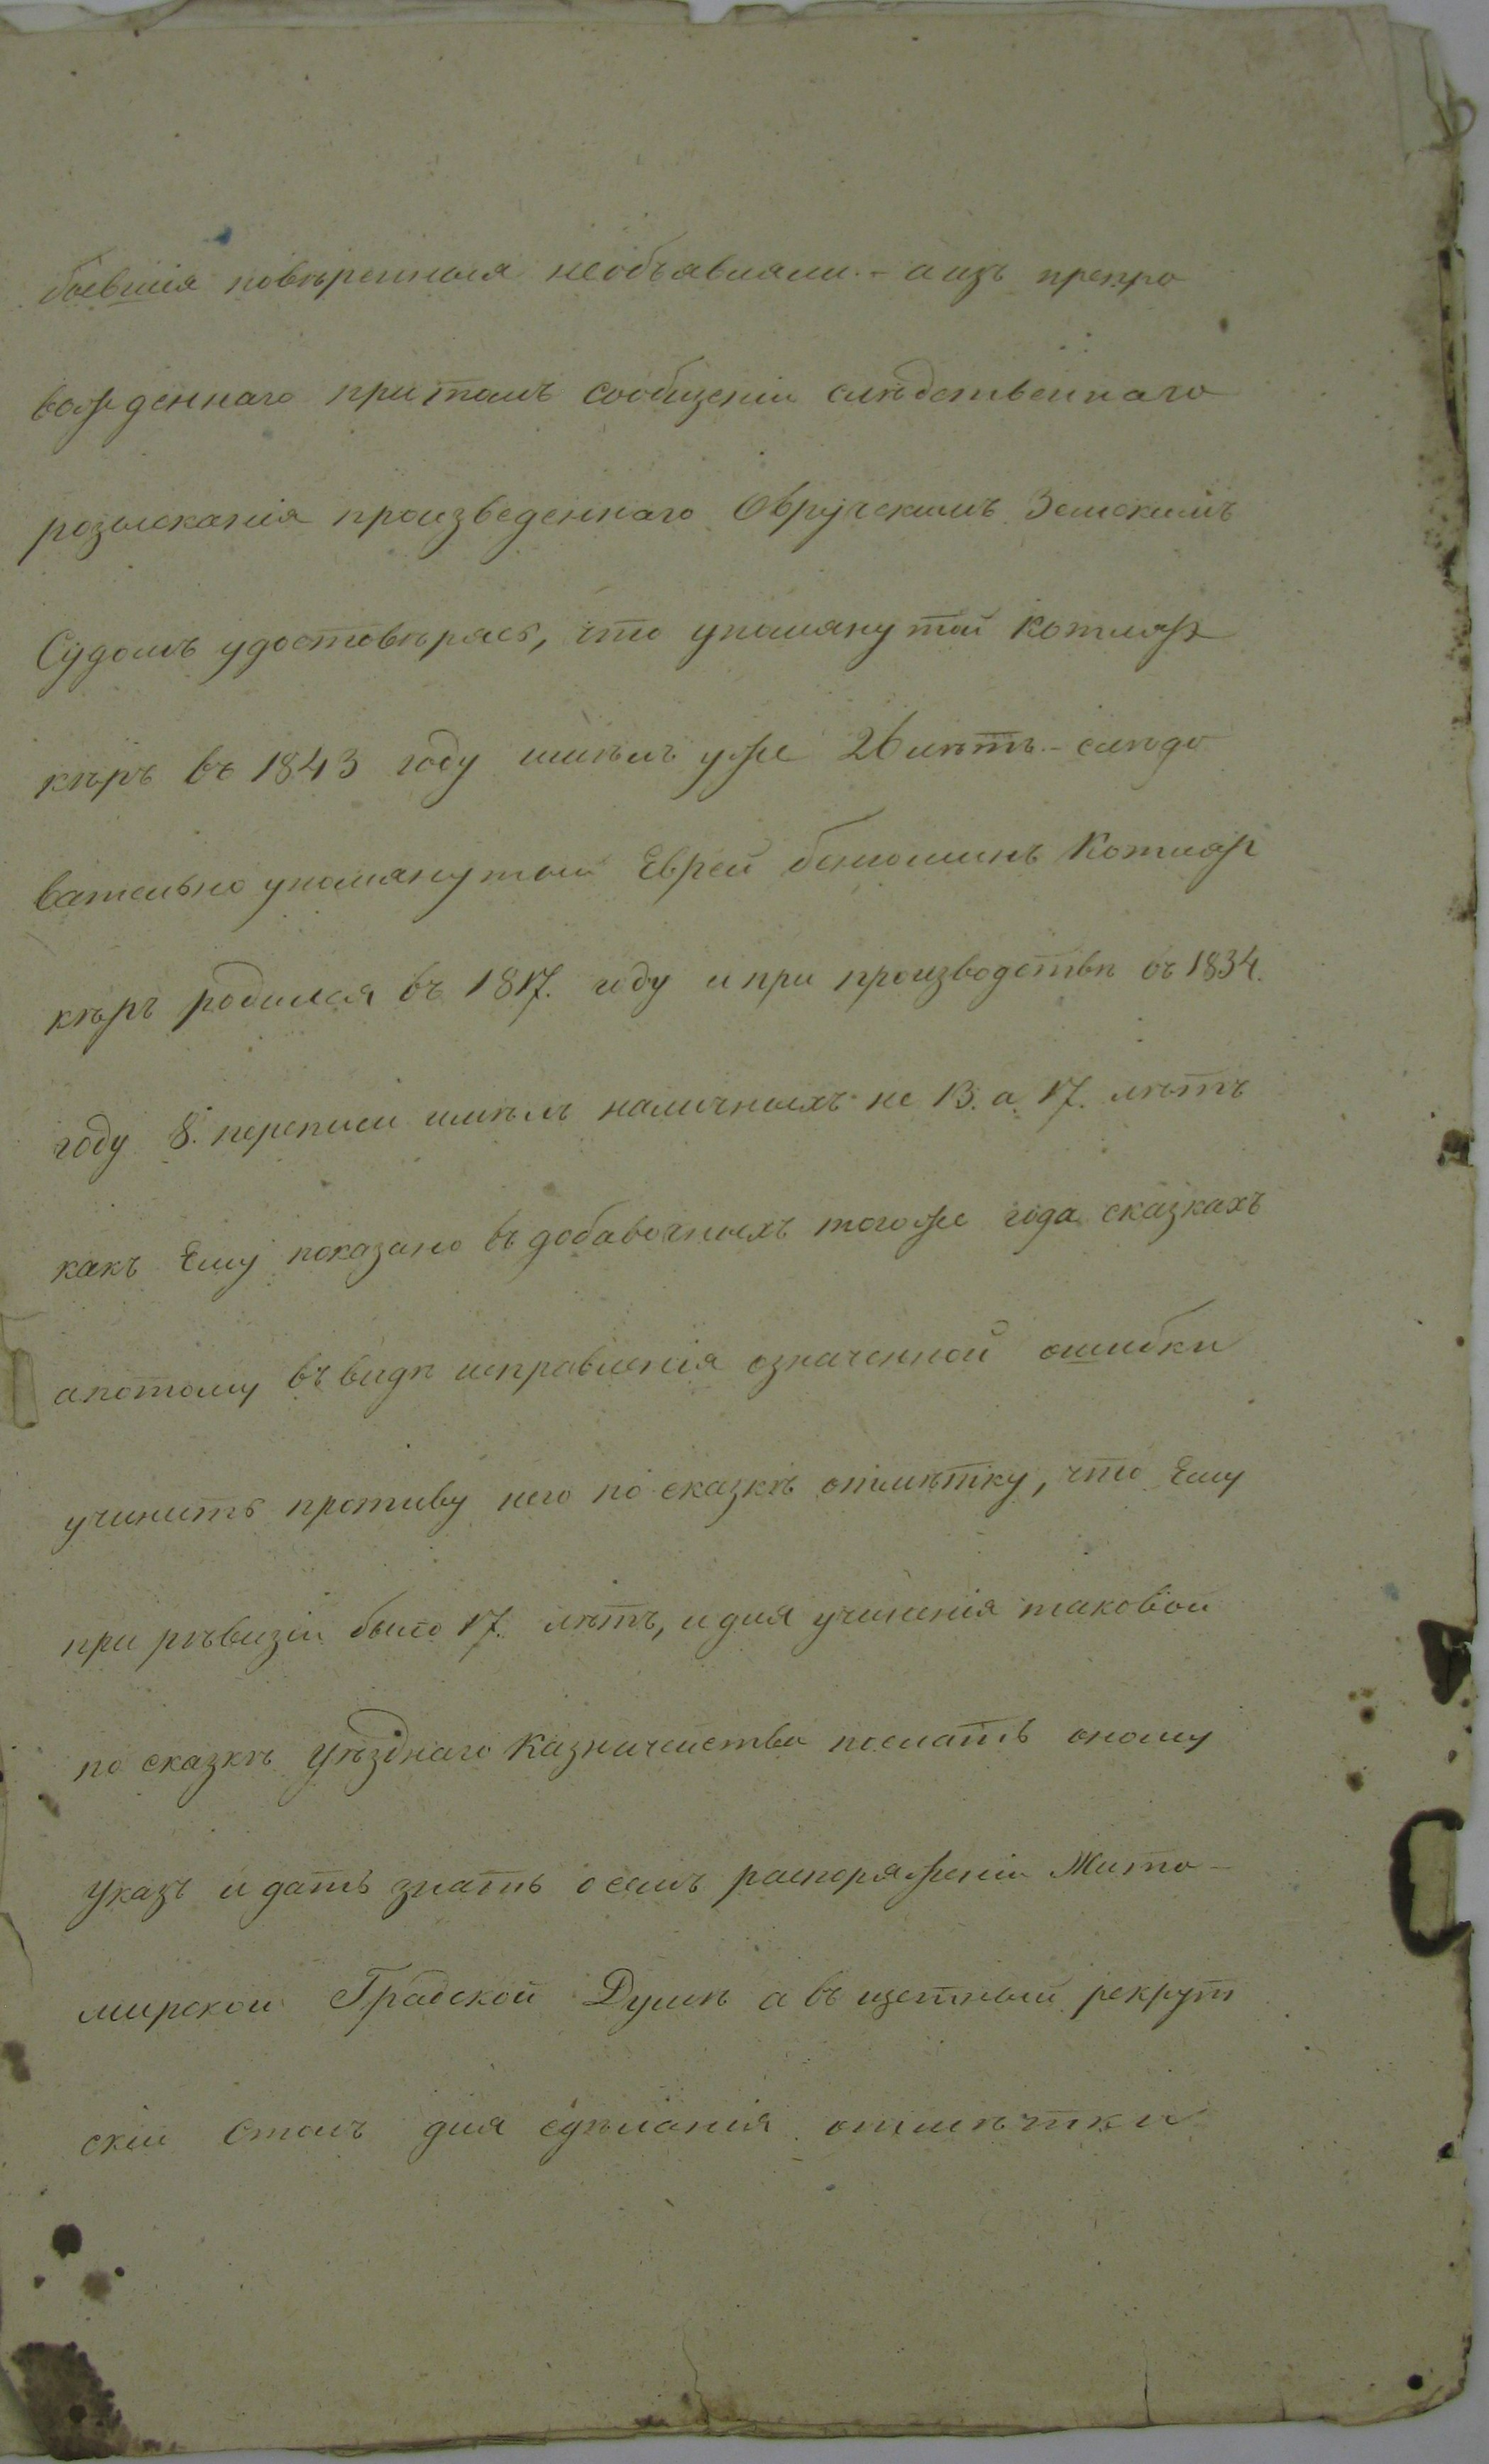 бывшія повѣренныя необъявляли. - а изъ препро
вожденнаго при томъ сообщеніи слѣдственнаго
розысканія произведеннаго Овручскимъ Земскимъ
Судомъ удостовѣряясь, что упомянутый Котляр
кѣръ въ 1843 году имѣлъ уже 26 лѣтъ. - слѣдо
вательно упомянутый Еврей Котляр
кѣръ родился въ 1817. году и при производствѣ въ 1834.
году 8. переписи имѣлъ наличныхъ не 13. а 17. лѣтъ
какъ Ему показано въ добавочныхъ тогоже года сказкахъ
а потому въ видѣ исправленія означенной ошибки
учинить противу него по сказкѣ отмѣтку, что Ему
при рѣвизіи было 17. лѣтъ, и для учиненія таковой
по сказкѣ Уѣзднаго Казначейства послать оному
Указъ и дать знать о семъ распоряженіи Жито-
мирской Градской Думѣ а въ щетный рекрут
скій Столъ для сдѣланія отмѣтки